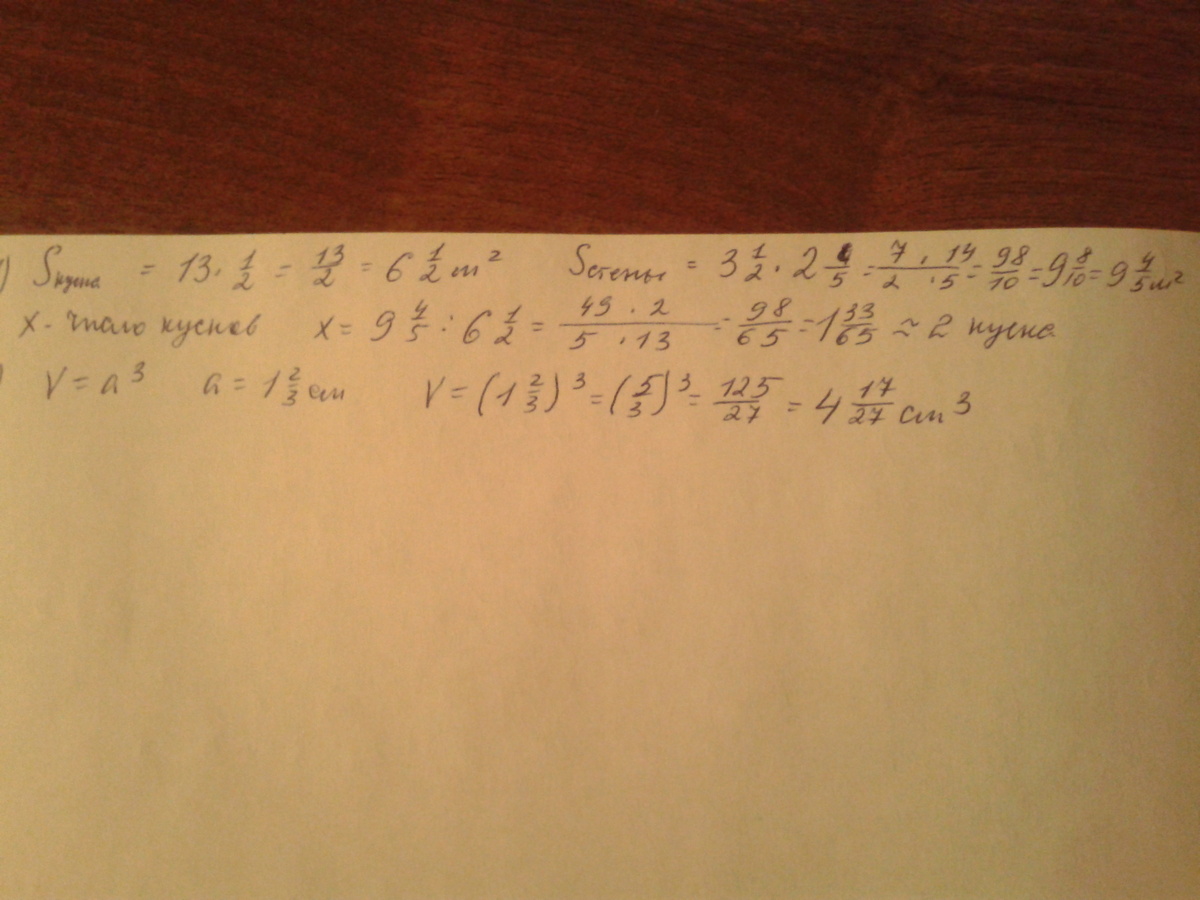 ) Sкуска = 13 · 1/2 = 13/2 = 6 1/2 м² Sстены = 3 1/2 · 2 4/5 = 7 · 14 / 2 · 5 = 98/10 = 9 8/10 = 9 4/5 м²
x - число кусков x = 9 4/5 : 6 1/2 = 49 · 2 / 5 · 13 = 98/65 = 1 33/65 ≈ 2 куска
) V = a³ a = 1 2/3 см V = (1 2/3)³ = (5/3)³ = 125/27 = 4 17/27 см³